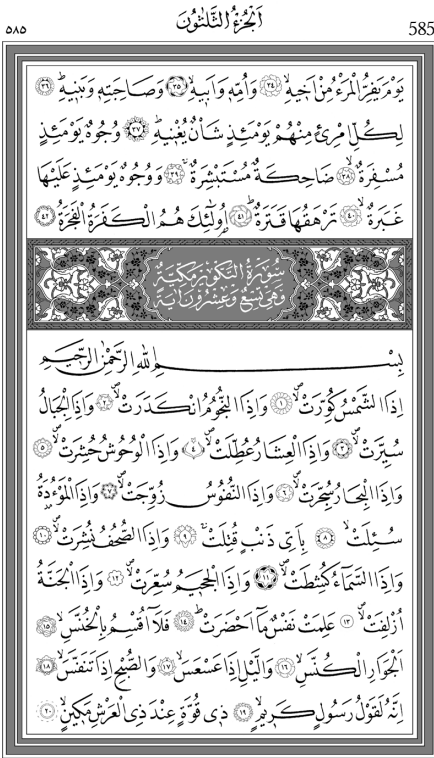 ٥٨٥ اَلْجُزْءُ الثَّلٰثُونَ 585
يَوْمَ يَفِرُّ الْمَرْءُ مِنْ اَخٖيهِۙ ﴿٣٤﴾ وَاُمِّهٖ وَاَبٖيهِۙ ﴿٣٥﴾ وَصَاحِبَتِهٖ وَبَنٖيهِۜ ﴿٣٦﴾
لِكُلِّ امْرِئٍ مِنْهُمْ يَوْمَئِذٍ شَأْنٌ يُغْنٖيهِۜ ﴿٣٧﴾ وُجُوهٌ يَوْمَئِذٍ
مُسْفِرَةٌۙ ﴿٣٨﴾ ضَاحِكَةٌ مُسْتَبْشِرَةٌۚ ﴿٣٩﴾ وَوُجُوهٌ يَوْمَئِذٍ عَلَيْهَا
غَبَرَةٌۙ ﴿٤٠﴾ تَرْهَقُهَا قَتَرَةٌۜ ﴿٤١﴾ اُو۬لٰٓئِكَ هُمُ الْكَفَرَةُ الْفَجَرَةُ ﴿٤٢﴾
سُورَةُ التَّكْوٖيرِ مَكِّيَّةٌ
وَهِيَ تِسْعٌ وَعِشْرُونَ اٰيَةً
بِسْمِ اللّٰهِ الرَّحْمٰنِ الرَّحٖيمِ
اِذَا الشَّمْسُ كُوِّرَتْۙ ﴿١﴾ وَاِذَا النُّجُومُ انْكَدَرَتْۙ ﴿٢﴾ وَاِذَا الْجِبَالُ
سُيِّرَتْۙ ﴿٣﴾ وَاِذَا الْعِشَارُ عُطِّلَتْۙ ﴿٤﴾ وَاِذَا الْوُحُوشُ حُشِرَتْۙ ﴿٥﴾
وَاِذَا الْبِحَارُ سُجِّرَتْۙ ﴿٦﴾ وَاِذَا النُّفُوسُ زُوِّجَتْۙ ﴿٧﴾ وَاِذَا الْمَوْءُ۫دَةُ
سُئِلَتْۙ ﴿٨﴾ بِاَيِّ ذَنْبٍ قُتِلَتْۚ ﴿٩﴾ وَاِذَا الصُّحُفُ نُشِرَتْۙ ﴿١٠﴾
وَاِذَا السَّمَٓاءُ كُشِطَتْۙ ﴿١١﴾ وَاِذَا الْجَحٖيمُ سُعِّرَتْۙ ﴿١٢﴾ وَاِذَا الْجَنَّةُ
اُزْلِفَتْۙ ﴿١٣﴾ عَلِمَتْ نَفْسٌ مَٓا اَحْضَرَتْۜ ﴿١٤﴾ فَلَٓا اُقْسِمُ بِالْخُنَّسِۙ ﴿١٥﴾
اَلْجَوَارِ الْكُنَّسِۙ ﴿١٦﴾ وَالَّيْلِ اِذَا عَسْعَسَۙ ﴿١٧﴾ وَالصُّبْحِ اِذَا تَنَفَّسَۙ ﴿١٨﴾
اِنَّهُ لَقَوْلُ رَسُولٍ كَرٖيمٍۙ ﴿١٩﴾ ذٖي قُوَّةٍ عِنْدَ ذِي الْعَرْشِ مَكٖينٍۙ ﴿٢٠﴾